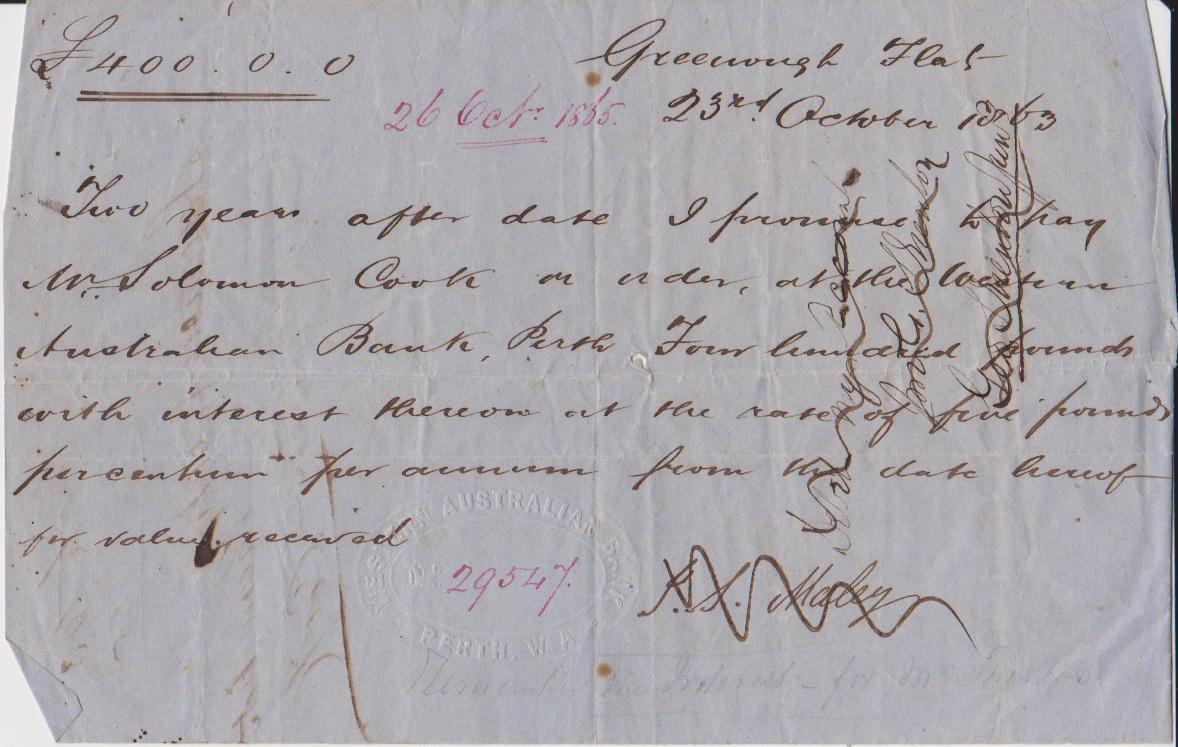 £400.0.0
Greenough Flat
26 Octr. 1865. 23rd. October 1863
Two years after date I promise to pay
Mr. Solomon Cook or order, at the Western
Australian Bank, Perth Four hundred pounds
with interest thereon at the rate of five pounds
percentum per annum from the date hereof
for value received
WESTERN AUSTRALIAN BANK
No. 29547.
PERTH, W.A.
Maley
Remember the Interest - for Mr